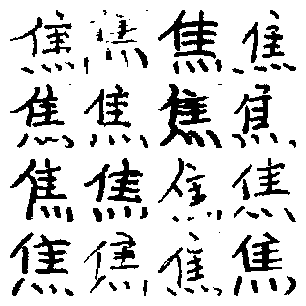 焦焦焦焦
焦焦焦焦
焦焦焦焦
焦焦焦焦